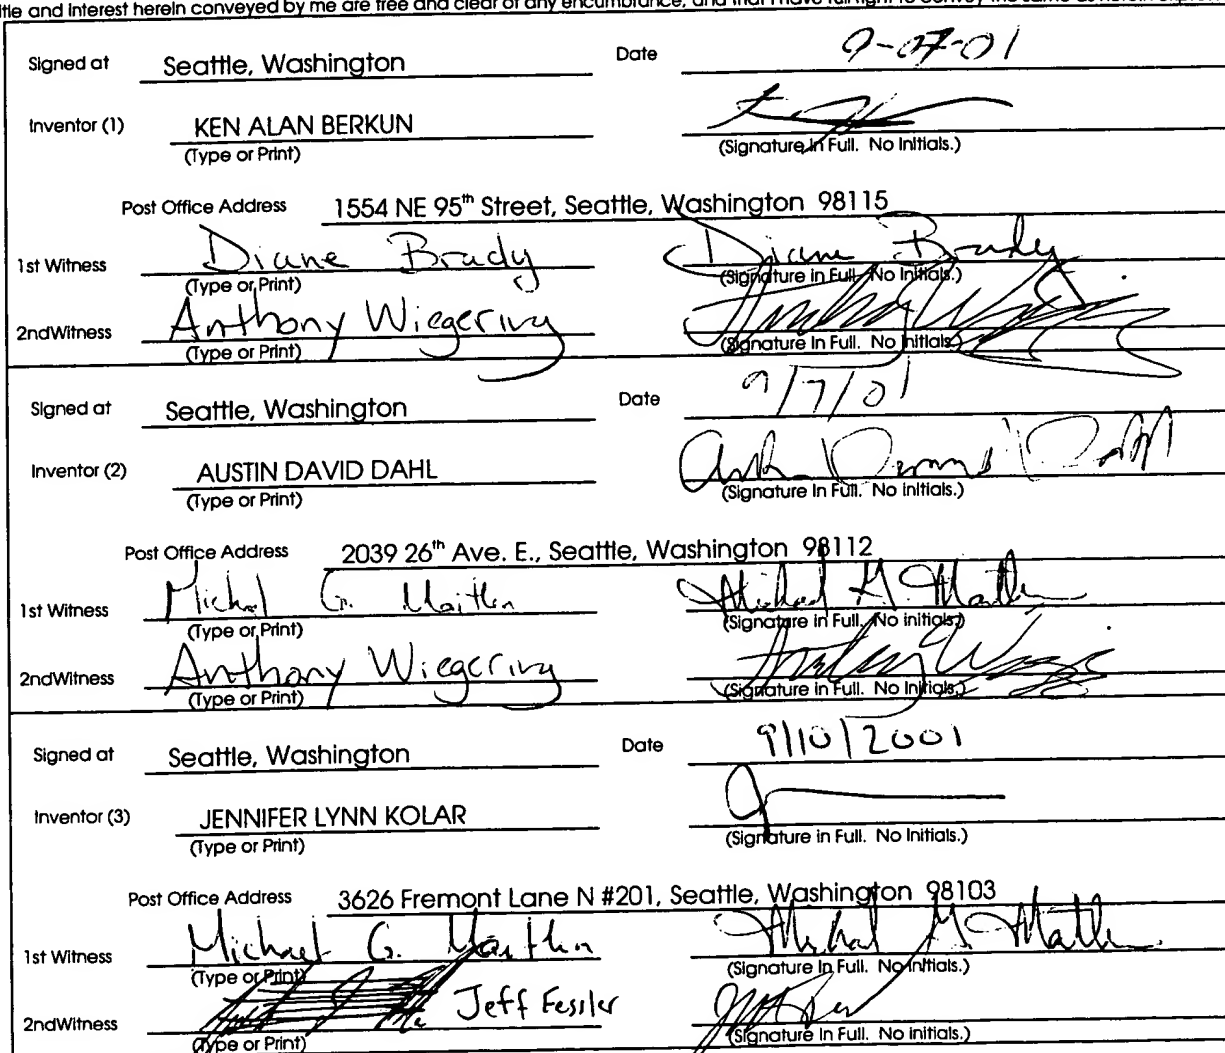 title and interest herein conveyed by me are free and clear of any encumbrance, and that I have full right to convey the same as herein
Signed at Seattle, Washington Date 9-07-01
Inventor (1) KEN ALAN BERKUN
(Type or Print) (Signature in Full. No Initials.)
Post Office Address 1554 NE 95th Street, Seattle, Washington 98115
1st Witness Diane Brady Diane Brady
(Type or Print) (Signature in Full. No Initials.)
2ndWitness Anthony Wiegering
(Type or Print) (Signature in Full. No Initials.)
Signed at Seattle, Washington Date 9/7/01
Inventor (2) AUSTIN DAVID DAHL
(Type or Print) (Signature in Full. No initials.)
Post Office Address 2039 26th Ave. E., Seattle, Washington 98112
1st Witness Michael G.
(Type or Print) (Signature in Full. No initials.)
2ndWitness Anthony Wiegering
(Type or Print) (Signature in Full. No Initials.)
Signed at Seattle, Washington Date 9/10/2001
Inventor (3) JENNIFER LYNN KOLAR
(Type or Print) (Signature in Full. No Initials.)
Post Office Address 3626 Fremont Lane N #201, Seattle, Washington 98103
1st Witness Michael G.
(Type or Print) (Signature in Full. No Initials.)
2ndWitness Jeff Fessler
(Type or Print) (Signature in Full. No initials.)